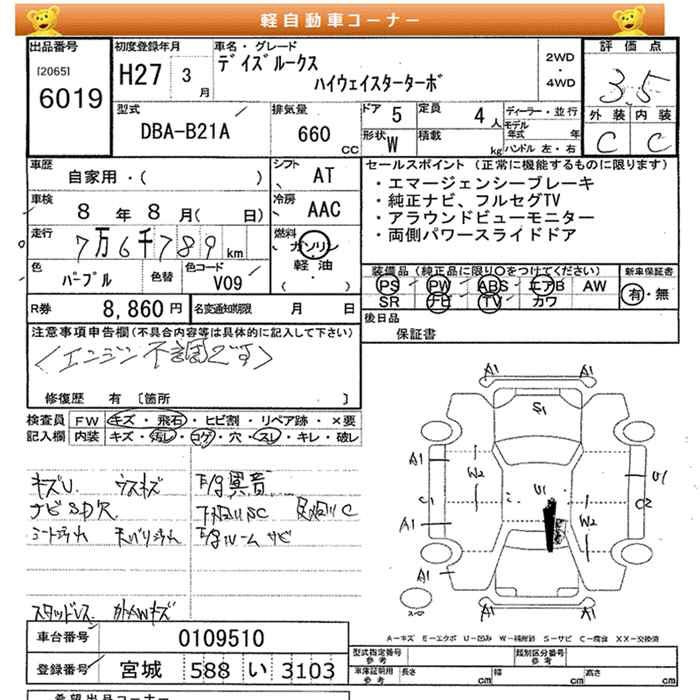 軽自動車コーナー
出品番号
[2065]
6019
初度登録年月
H27 3月
車名・グレード
デイズルークス
ハイウェイスターターボ
2WD
・
4WD
評価点
3.5
外装 内装
C C
型式
DBA-B21A
排気量
660 CC
ドア 5
定員 4人
形状 W
積載 kg
ディーラー・並行
モデル年式 年
ハンドル 左・右
車歴
自家用・( )
シフト AT
車検
8年8月( 日)
冷房 AAC
走行
7万6千789km
燃料
ガソリン
軽油
・
( )
色
パープル
色替
色コード
V09
R券 8,860円
名変通知期限 月 日
セールスポイント(正常に機能するものに限ります)
・エマージェンシーブレーキ
・純正ナビ、フルセグTV
・アラウンドビューモニター
・両側パワースライドドア
装備品(純正品に限り○をつけてください)
PS PW ABS エアB AW
SR ナビ TV カワ
新車保証書
有・無
後日品
保証書
注意事項申告欄(不具合内容等は具体的に記入して下さい)
〈エンジン不調です〉
修復歴 有 [箇所 ]
検査員
記入欄
FW キズ・飛石・ヒビ割・リペア跡・×要
内装 キズ・汚レ・コゲ・穴・スレ・キレ・破レ
キズU ウスキズ
E/g異音
ナビSD欠
下廻りSC 足廻りC
E/gルームサビ
スタッドレス
A1 A1
S1
A1
W2
U1
U1
C1
C2
A1
W2
A1
A1
A-キズ E-エクボ U-凹み W-補修跡 S-サビ C-腐食 XX-交換済
車台番号 0109510
登録番号 宮城 588 い 3103
型式指定番号
参考
類別区分番号
参考
車庫証明用
参考
長さ cm 幅 cm 高さ cm
希望出品コーナー